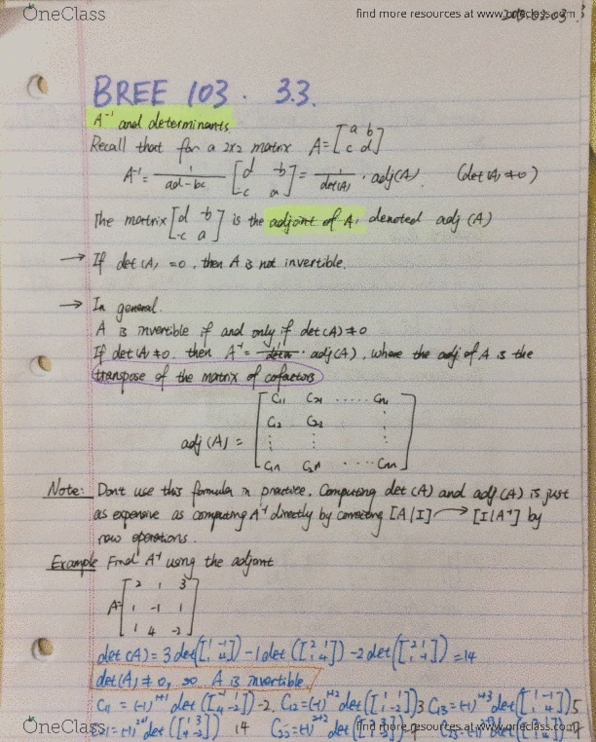 OneClass
find more resources at www.oneclass.com
BREE 103. 3.3.
A⁻¹ and determinants.
Recall that for a 2x2 matrix A = [a b; c d]
A⁻¹ = 1/(ad-bc) [d -b; -c a] = 1/det(A) · adj(A). (det(A) ≠ 0)
The matrix [d -b; -c a] is the adjoint of A, denoted adj (A)
→ If det(A) = 0, then A is not invertible.
→ In general.
A is invertible if and only if det(A) ≠ 0
If det(A) ≠ 0, then A⁻¹ = 1/det(A) · adj(A), where the adj of A is the
transpose of the matrix of cofactors
C₁₁ C₂₁ ...... Cn₁
C₁₂ C₂₂
adj(A) =
C₁n C₂n ... Cnn
Note: Don't use this formula in practice. Computing det(A) and adj(A) is just
as expensive as computing A⁻¹ directly by converting [A|I] → [I|A⁻¹] by
row operations.
Example Find A⁻¹ using the adjoint
2 1 3
A = 1 -1 1
1 4 -2
det(A) = 3 det([1 -1; 1 4]) - 1 det([2 1; 1 4]) - 2 det([2 1; 1 -1]) = 14
det(A) ≠ 0, so A is invertible.
C₁₁ = (-1)¹⁺¹ det([-1 1; 4 -2]) -2, C₁₂ = (-1)¹⁺² det([1 1; 1 -2]) 3 C₁₃ = (-1)¹⁺³ det([1 -1; 1 4]) 5
C₂₁ = (-1)²⁺¹ det([1 3; 4 -2]) 14 C₂₂ = (-1)²⁺² det([2 3; 1 -2]) -7
OneClass
find more resources at www.oneclass.com